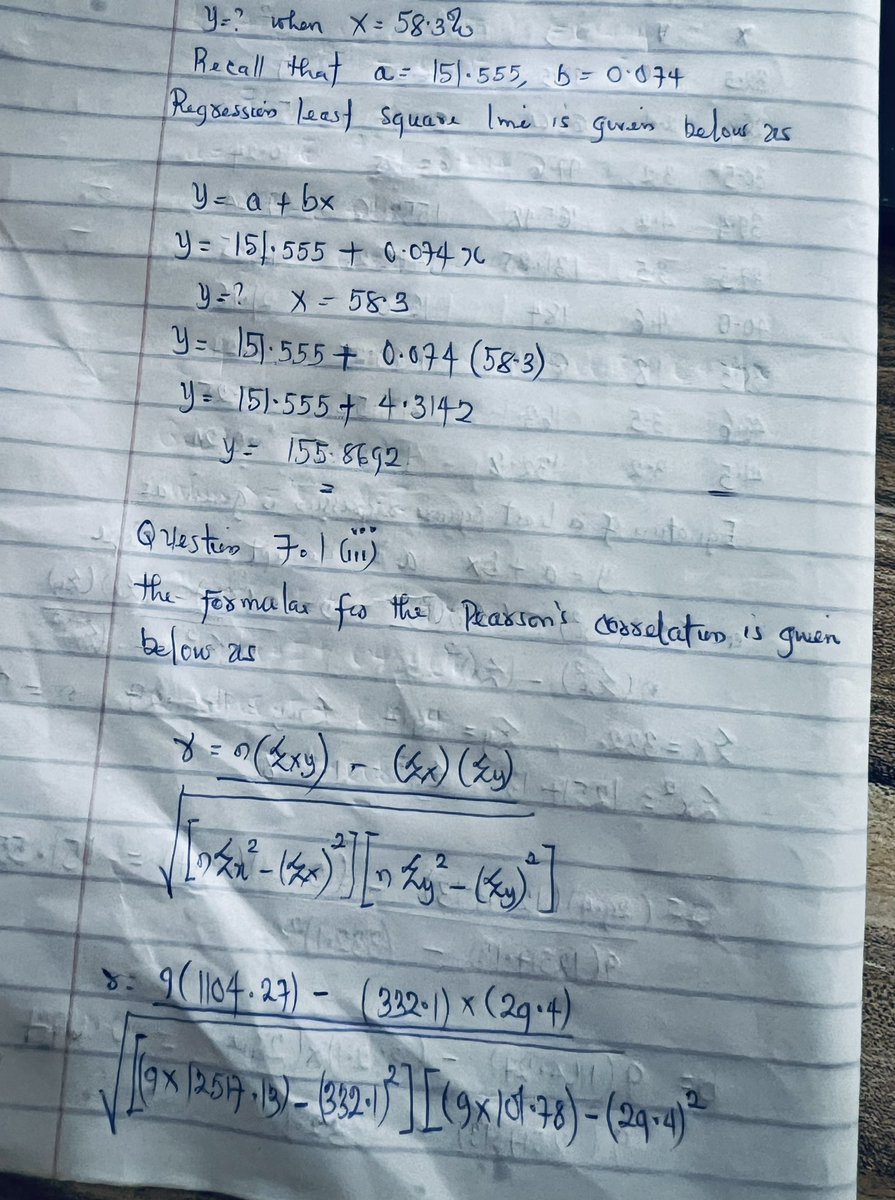 y=? when x = 58.3%
Recall that a = 151.555, b = 0.074
Regression least square line is given below as
y = a + bx
y = 151.555 + 0.074x
y=? x = 58.3
y = 151.555 + 0.074 (58.3)
y = 151.555 + 4.3142
y = 155.8692
Question 7.1 (iii)
the formular for the Pearson's correlation is given
below as
r = n(Σxy) - (Σx)(Σy)
√[nΣx² - (Σx)²][nΣy² - (Σy)²]
r = 9(1104.27) - (332.1) x (29.4)
√[(9x12517.13) - (332.1)²][(9x101.78) - (29.4)²